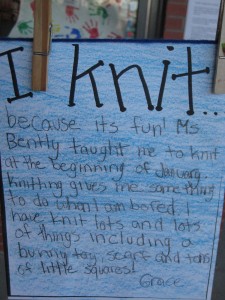 I knit...
because its fun! Ms
Bently taught me to knit
at the beginning of January
knitting gives me something
to do when I am bored. I
have knit lots and lots
of things including a
bunny toy, scarf and tons
of little squares!
Grace